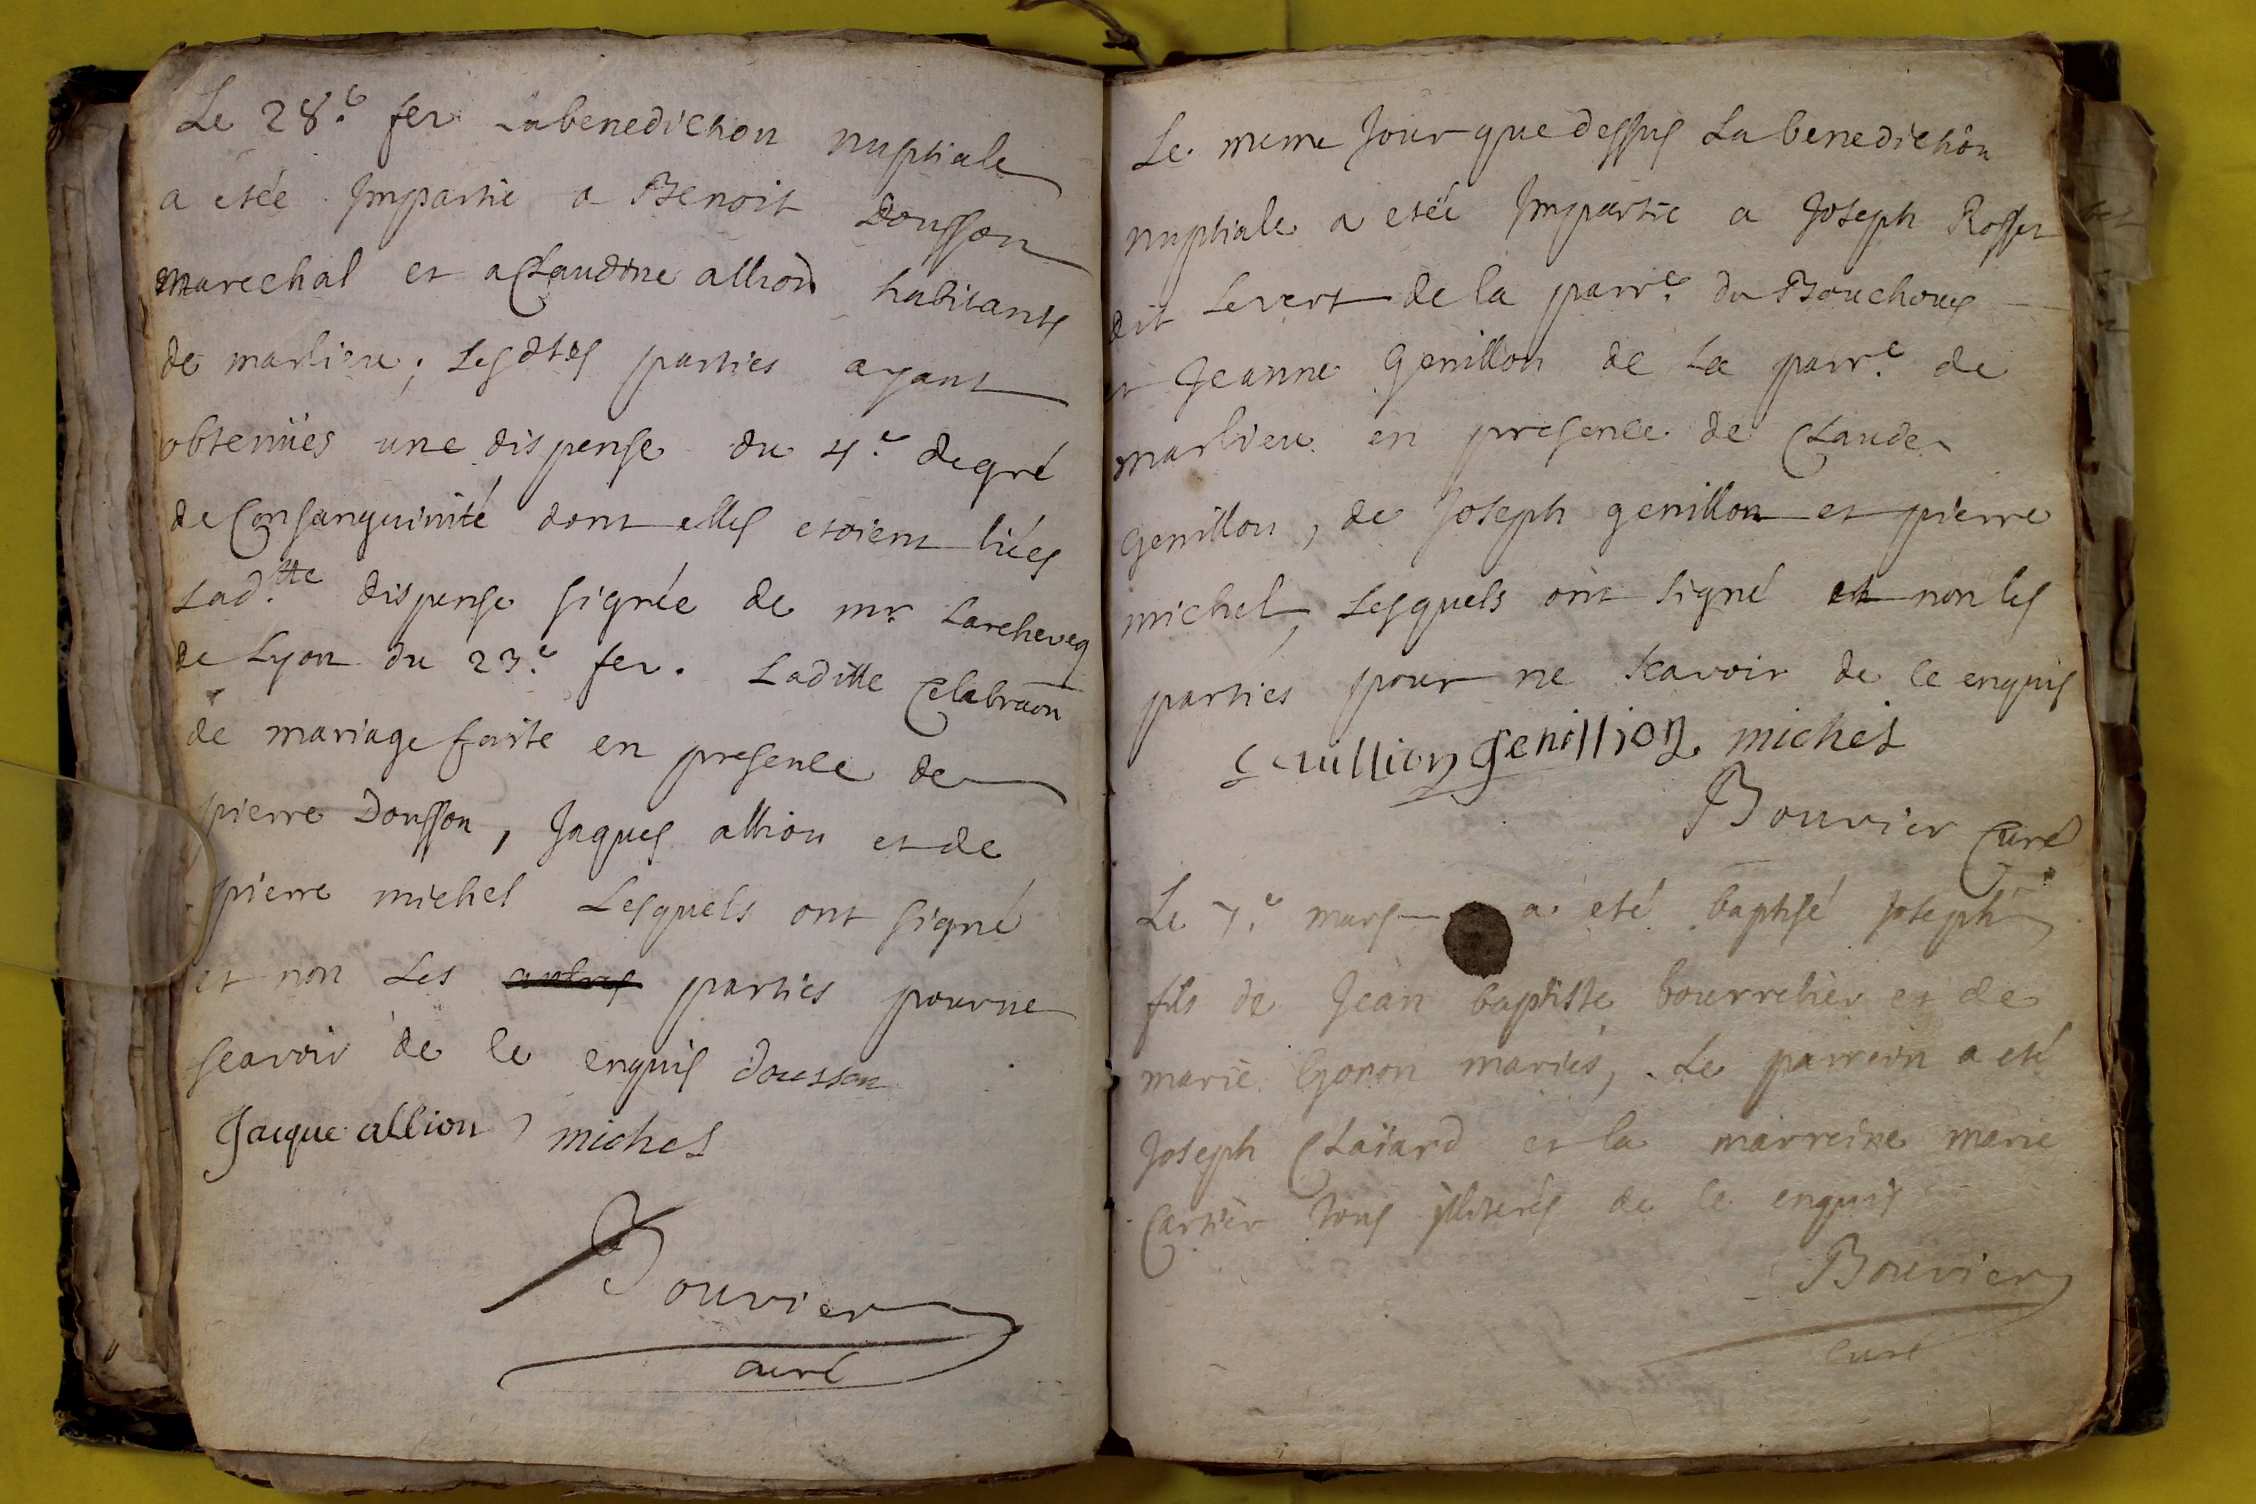 Le 28.e fer La benediction nuptiale
a etée Impartie a Benoit Dousson
marechal et a Claudine allion habitants
de marlieu; Lesdtes parties ayant
obtenües une dispense du 4.e degré
de Consanguinité dont elles etoient liées
Lad.tte dispense signée de mr Larcheveq
de Lyon du 23.e fer. Laditte Celebraõn
de mariage faite en presence de
pierre Dousson, Jaques allion et de
pierre michel Lesquels ont signé
et non Les autres parties pour ne
scavoir de ce enquis dousson
Jacque allion michel
Bouvier
curé
Le meme Jour que dessus La benediction
nuptiale a etée Impartie a Joseph Rosset
dit Levert de la parr.e du Bouchoux
et Jeanne Genillon de La parr.e de
marlieu en presence de Claude
Genillon, de Joseph genillon et pierre
michel, Lesquels ont signé et non les
parties pour ne scavoir de ce enquis
Genillion Genillion michel
Bouvier Curé
Le 7.e mars a eté baptisé Joseph
fils de Jean baptiste bourrelier et de
marie Gonon mariés, Le parrein a eté
Joseph Claiard et la marreine marie
Cartier tous illiterés de ce enquis
Bouvier
curé